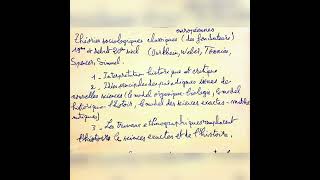 européennes
Théories sociologiques classiques (des fondateurs)
19ème et début 20ème siècl (Durkheim, Weber, Tönnies,
Spencer, Simmel.
1 - Interprétation historique et critique
2 - Des principales paradigmes issues de
nouvelles sciences (le model organique-biologie, le model
historique - l'histois, le model des sciences exactes - mathé
matiques)
3. Les travaux ethnographiques remplacent
l'histoire sciences exactes et de l'histoire.